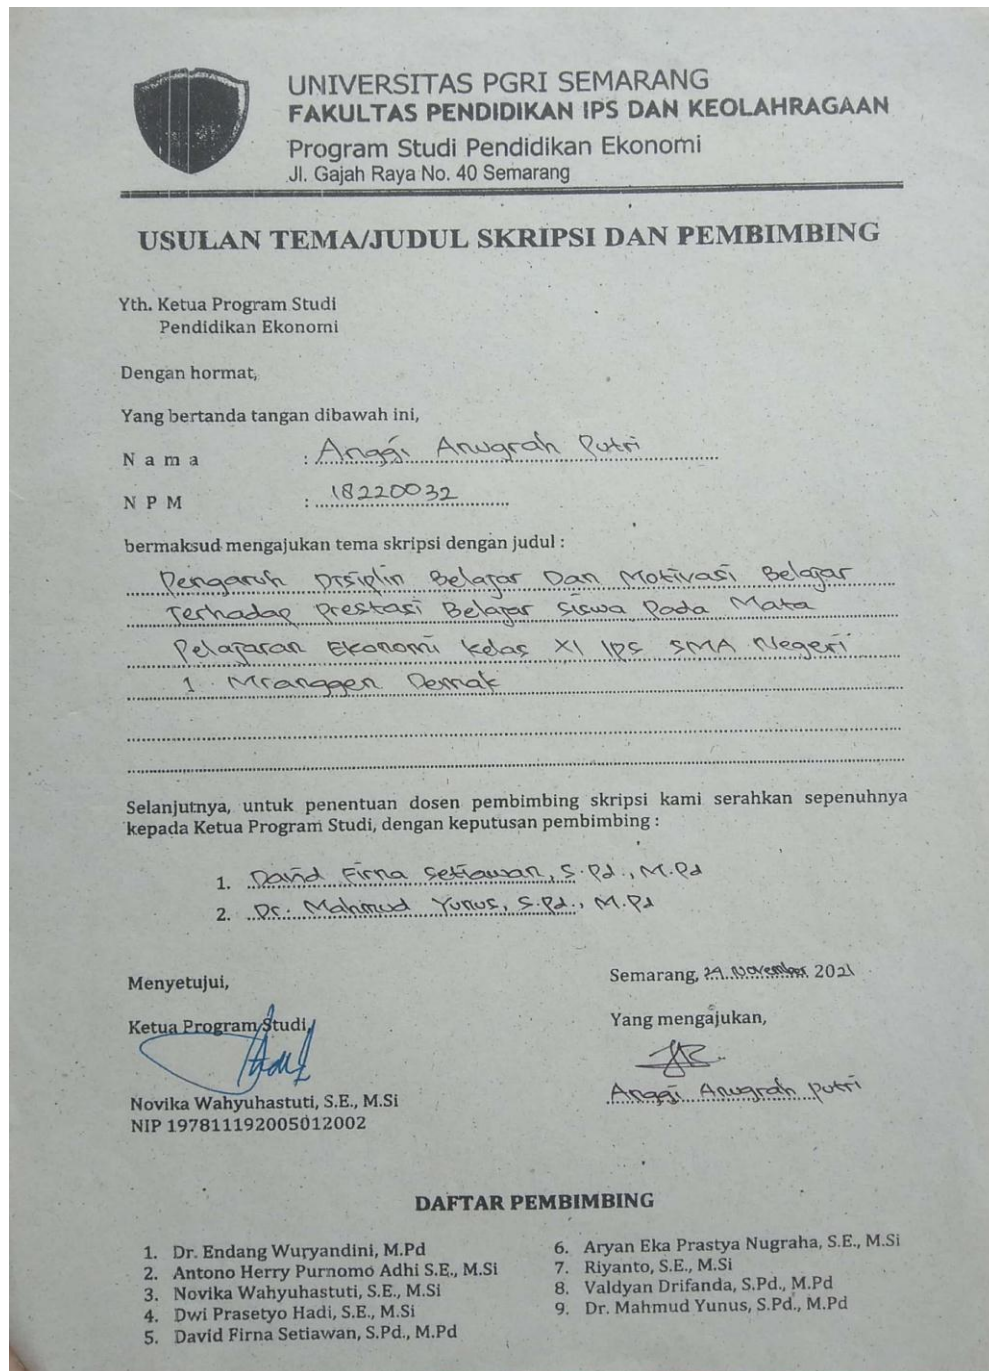 UNIVERSITAS PGRI SEMARANG
FAKULTAS PENDIDIKAN IPS DAN KEOLAHRAGAAN
Program Studi Pendidikan Ekonomi
Jl. Gajah Raya No. 40 Semarang
USULAN TEMA/JUDUL SKRIPSI DAN PEMBIMBING
Yth. Ketua Program Studi
Pendidikan Ekonomi
Dengan hormat,
Yang bertanda tangan dibawah ini,
N a m a : Anggi Anugrah Putri
N P M : 18220032
bermaksud mengajukan tema skripsi dengan judul :
Pengaruh Disiplin Belajar Dan Motivasi Belajar
Terhadap Prestasi Belajar Siswa Pada Mata
Pelajaran Ekonomi Kelas XI IPS SMA Negeri
1 Mranggen Demak
Selanjutnya, untuk penentuan dosen pembimbing skripsi kami serahkan sepenuhnya
kepada Ketua Program Studi, dengan keputusan pembimbing :
1. David Firna Setiawan, S.Pd., M.Pd
2. Dr. Mahmud Yunus, S.Pd., M.Pd
Semarang, 29 November 2021
Menyetujui,
Ketua Program Studi,
Yang mengajukan,
Novika Wahyuhastuti, S.E., M.Si
NIP 197811192005012002
Anggi Anugrah putri
DAFTAR PEMBIMBING
1. Dr. Endang Wuryandini, M.Pd
2. Antono Herry Purnomo Adhi S.E., M.Si
3. Novika Wahyuhastuti, S.E., M.Si
4. Dwi Prasetyo Hadi, S.E., M.Si
5. David Firna Setiawan, S.Pd., M.Pd
6. Aryan Eka Prastya Nugraha, S.E., M.Si
7. Riyanto, S.E., M.Si
8. Valdyan Drifanda, S.Pd., M.Pd
9. Dr. Mahmud Yunus, S.Pd., M.Pd